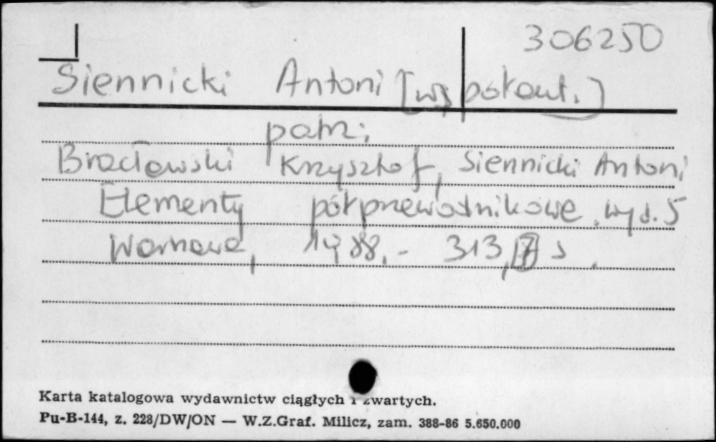 306250
Siennicki Antoni [współaut.]
patrz:
Bracławski Krzysztof, Siennicki Antoni
Elementy półprzewodnikowe, wyd. 5
Warszawa, 1988.- 313, [7] s.
Karta katalogowa wydawnictw ciągłych i zwartych.
Pu-B-144, z. 228/DW/ON — W.Z.Graf. Milicz, zam. 388-86 5.650.000